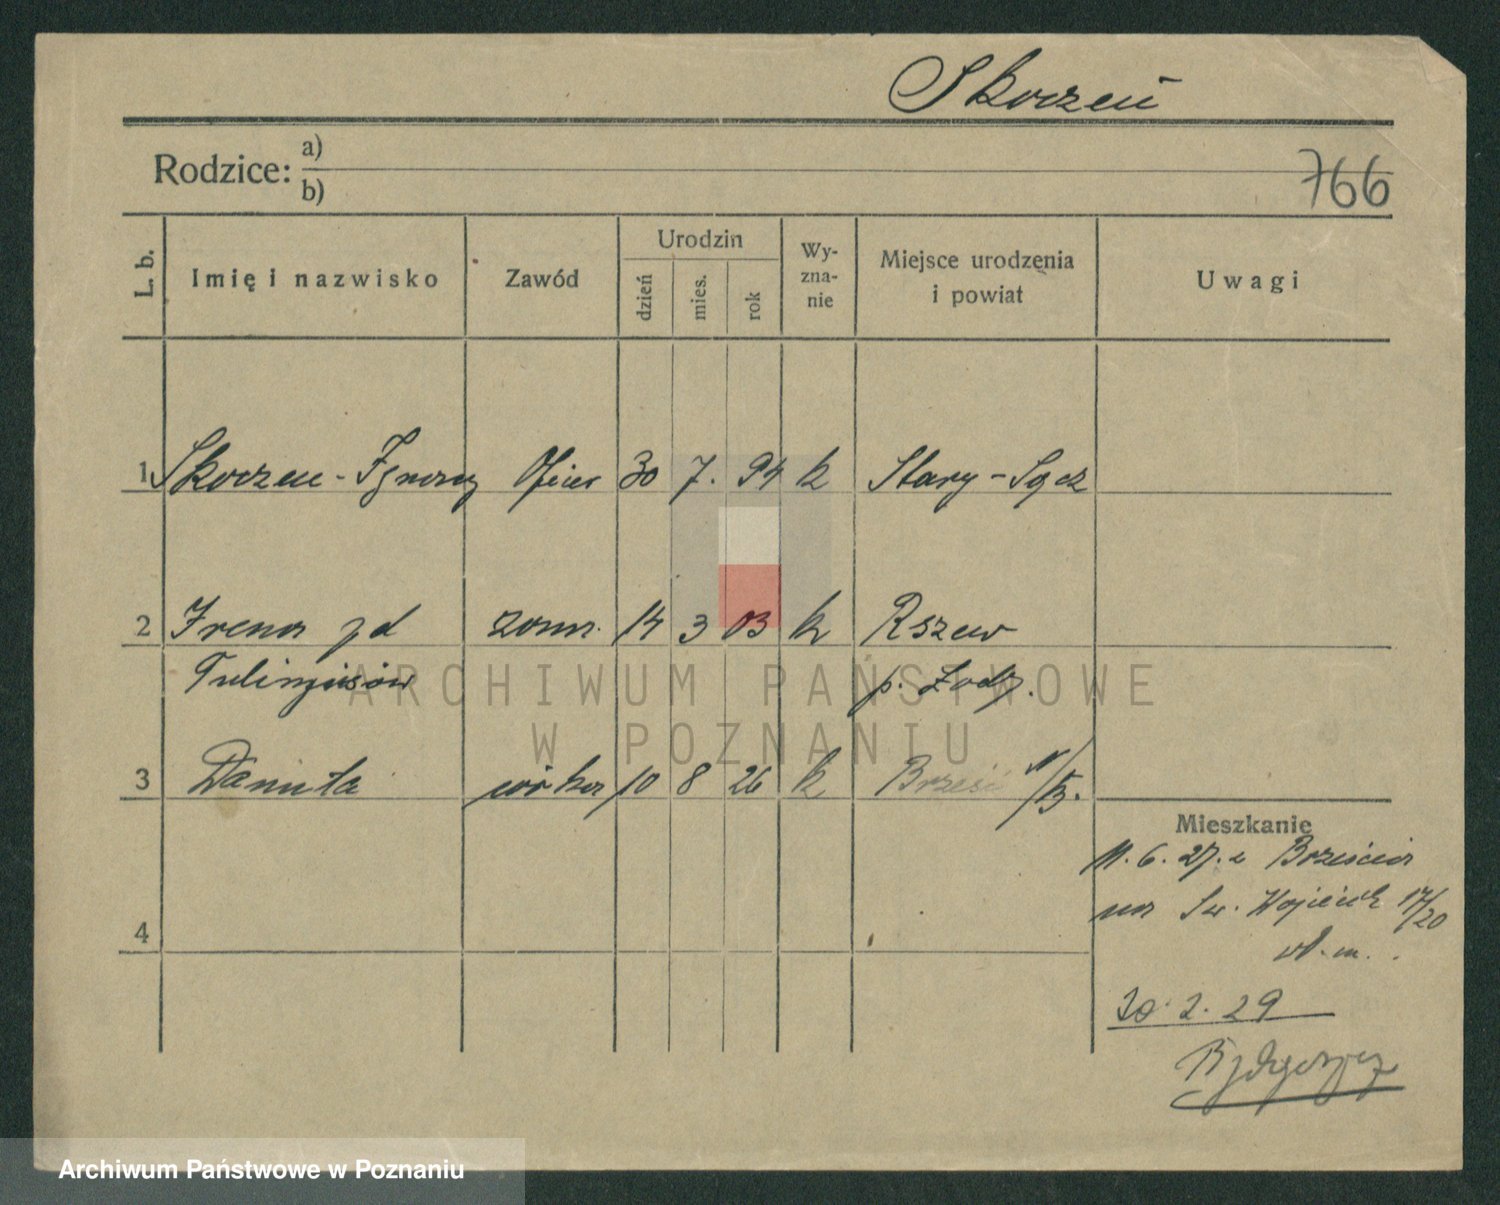 Skoczeń
Rodzice: a)
b)
766
L. b.
Imię i nazwisko
Zawód
Urodzin
dzień
mies.
rok
Wy-
zna-
nie
Miejsce urodzenia
i powiat
Uwagi
1 Skoczeu - Ignacy Oficer 30 7. 94 k Stary - Sącz
2 Irena zd żona. 14 3 03 k Rszew
p. Łodz.
3 Danuta córka 10 8 26 k Brześć n/B.
4
Mieszkanie
11. 6. 27. z Brześcia
na Św. Wojciech 17/20
30. 2. 29
Bydgoszcz
ARCHIWUM PAŃSTWOWE
W POZNANIU
Archiwum Państwowe w Poznaniu